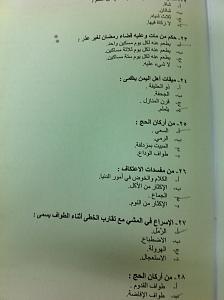 شاة.
شاتان.
ثلاث شياه.
لا زكاة فيها.
٢٢- حكم من مات وعليه قضاء رمضان لغير عذر :
يطعم عنه لكل يوم مسكين واحد.
يطعم عنه لكل يوم ثلاثة مساكين.
يطعم عنه لكل يوم مساكين.
لا شيء عليه.
ميقات أهل اليمن يسمى :
ذو الحليفة.
الجحفة.
قرن المنازل.
يلملم.
من أركان الحج :
السعي.
الرمي.
المبيت بمزدلفة.
طواف الوداع.
٢٦- من مفسدات الاعتكاف :
الكلام والخوض في أمور الدنيا.
الإكثار من الأكل.
الجماع.
الإكثار من النوم.
٢٧- الإسراع في المشي مع تقارب الخطى أثناء الطواف يسمى :
الرمل.
الاضطباع.
الهرولة.
الاستعجال.
٢٨- من أركان الحج :
طواف القدوم.
طواف الإفاضة.